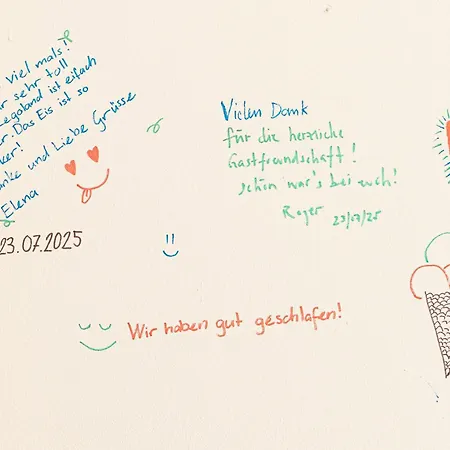 viel mals!
r sehr toll
egoland ist eifach
r. Das Eis ist so
ker!
anke und Liebe Grüsse
Elena
23.07.2025
Vielen Dank
für die herzliche
Gastfreundschaft!
schön war's bei euch!
Roger 23/07/25
Wir haben gut geschlafen!